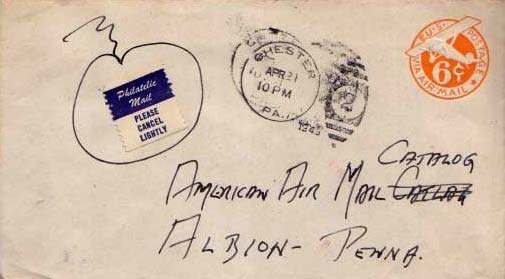 U.S. POSTAGE
6¢
VIA AIR-MAIL
CHESTER
APR 21
10 PM
PA.
1945
Philatelic
Mail
PLEASE
CANCEL
LIGHTLY
CATALOG
AMERICAN AIR MAIL
ALBION- PENNA.